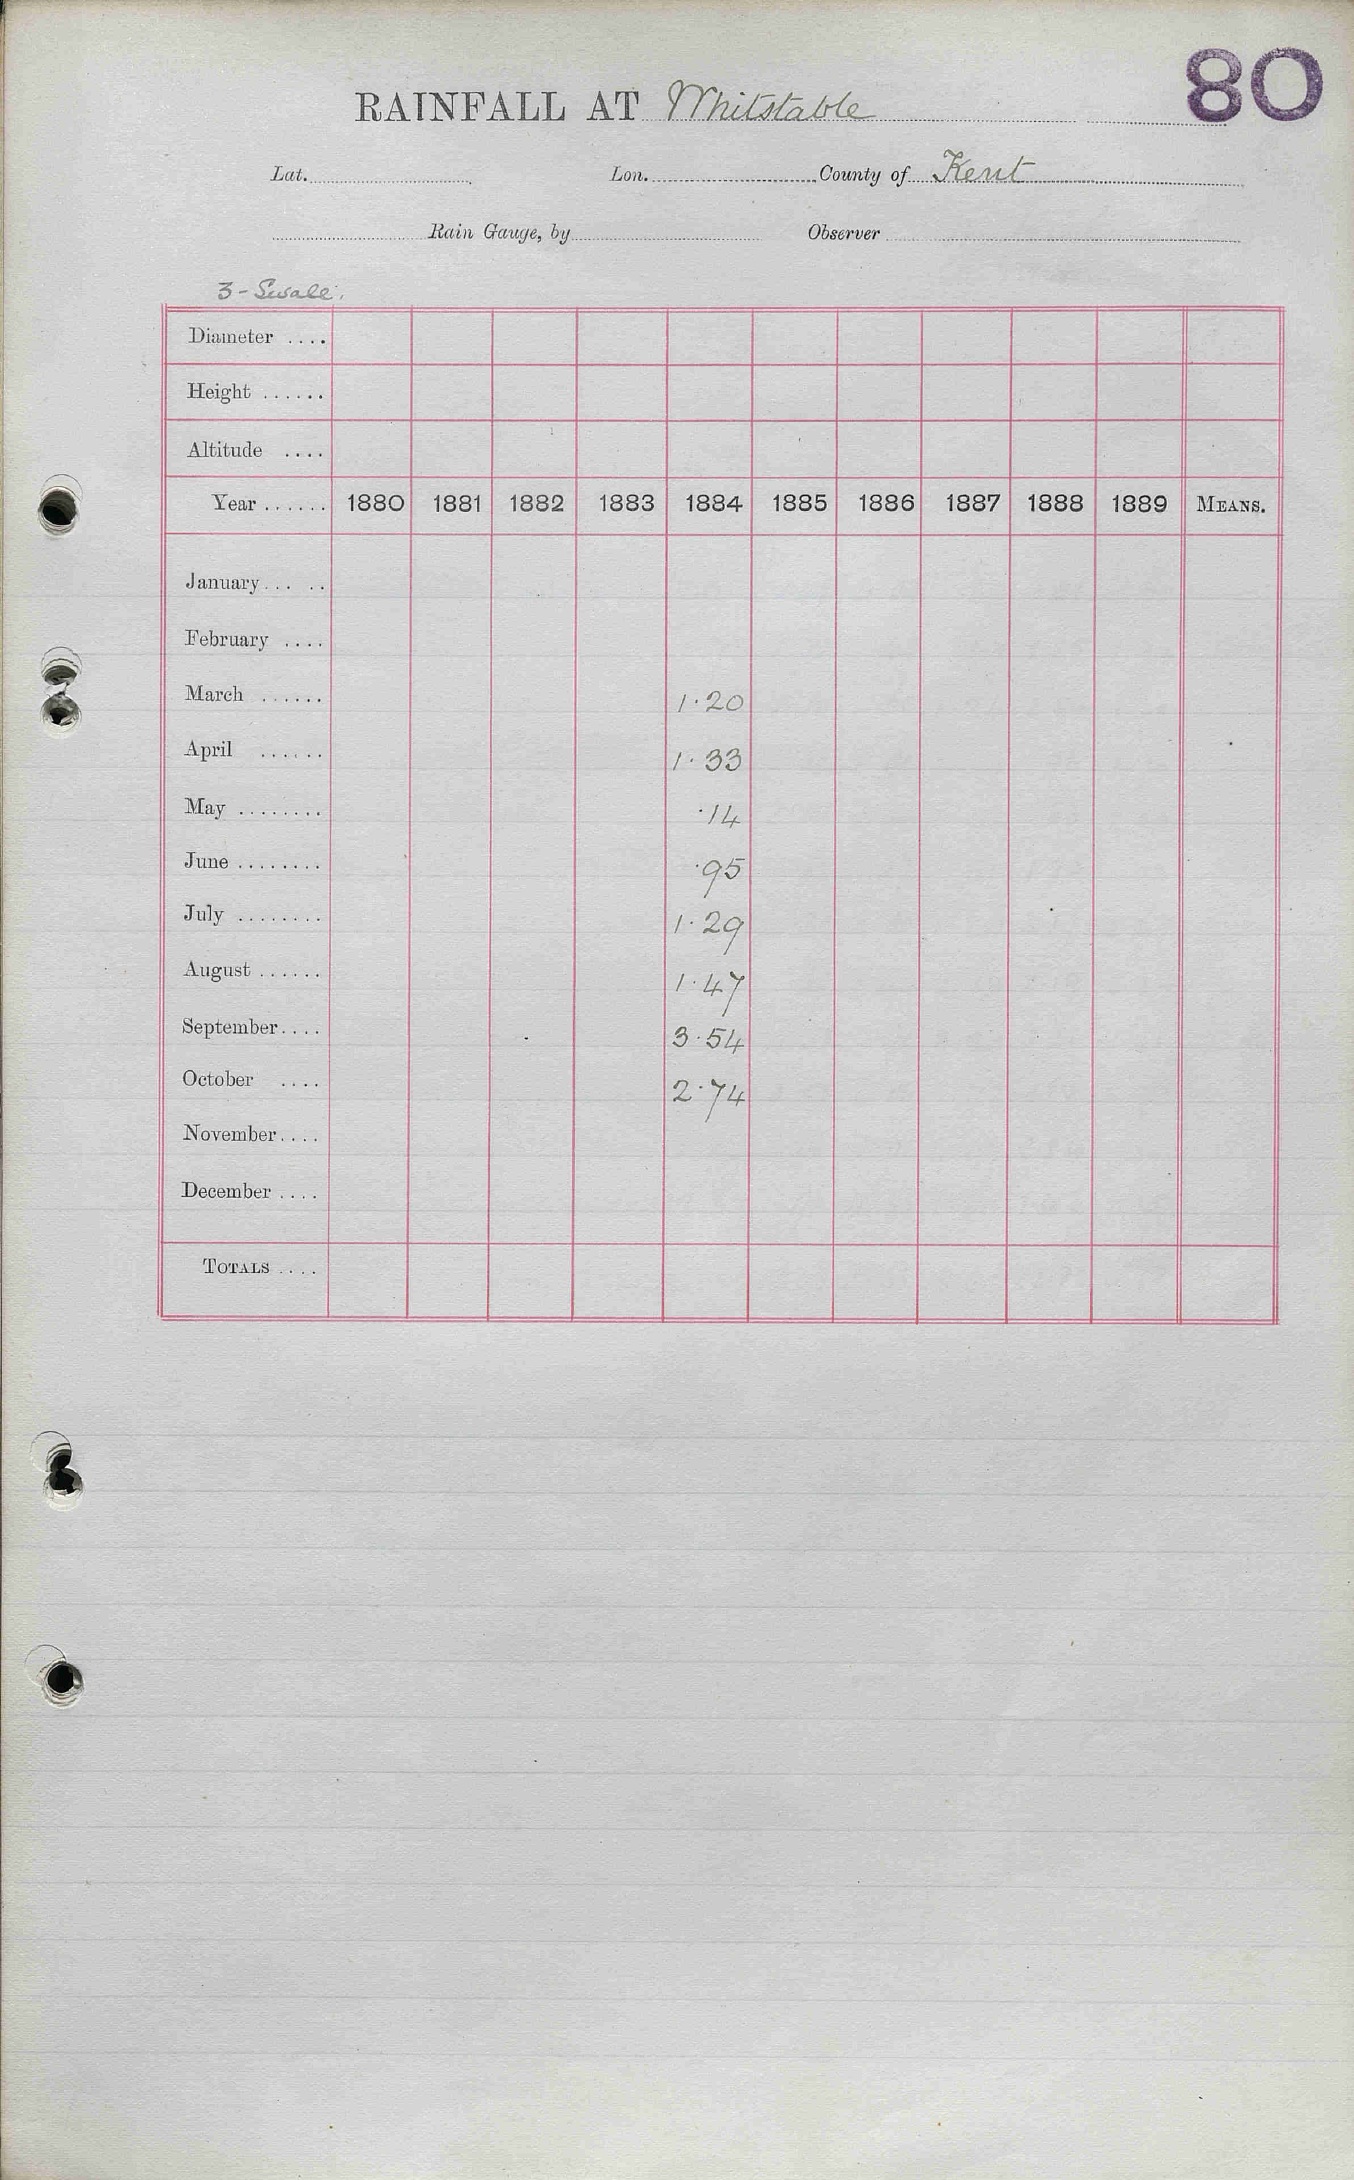 80
RAINFALL AT Whitstable
Lat. Lon. County of Kent
Rain Gauge, by Observer
3 - Swale.
Diameter ....
Height ......
Altitude ....
Year ...... 1880 1881 1882 1883 1884 1885 1886 1887 1888 1889 MEANS.
January... ..
February ....
March ...... 1.20
April ...... 1.33
May ........ .14
June ........ .95
July ........ 1.29
August ...... 1.47
September.... 3.54
October .... 2.74
November....
December ....
TOTALS ....